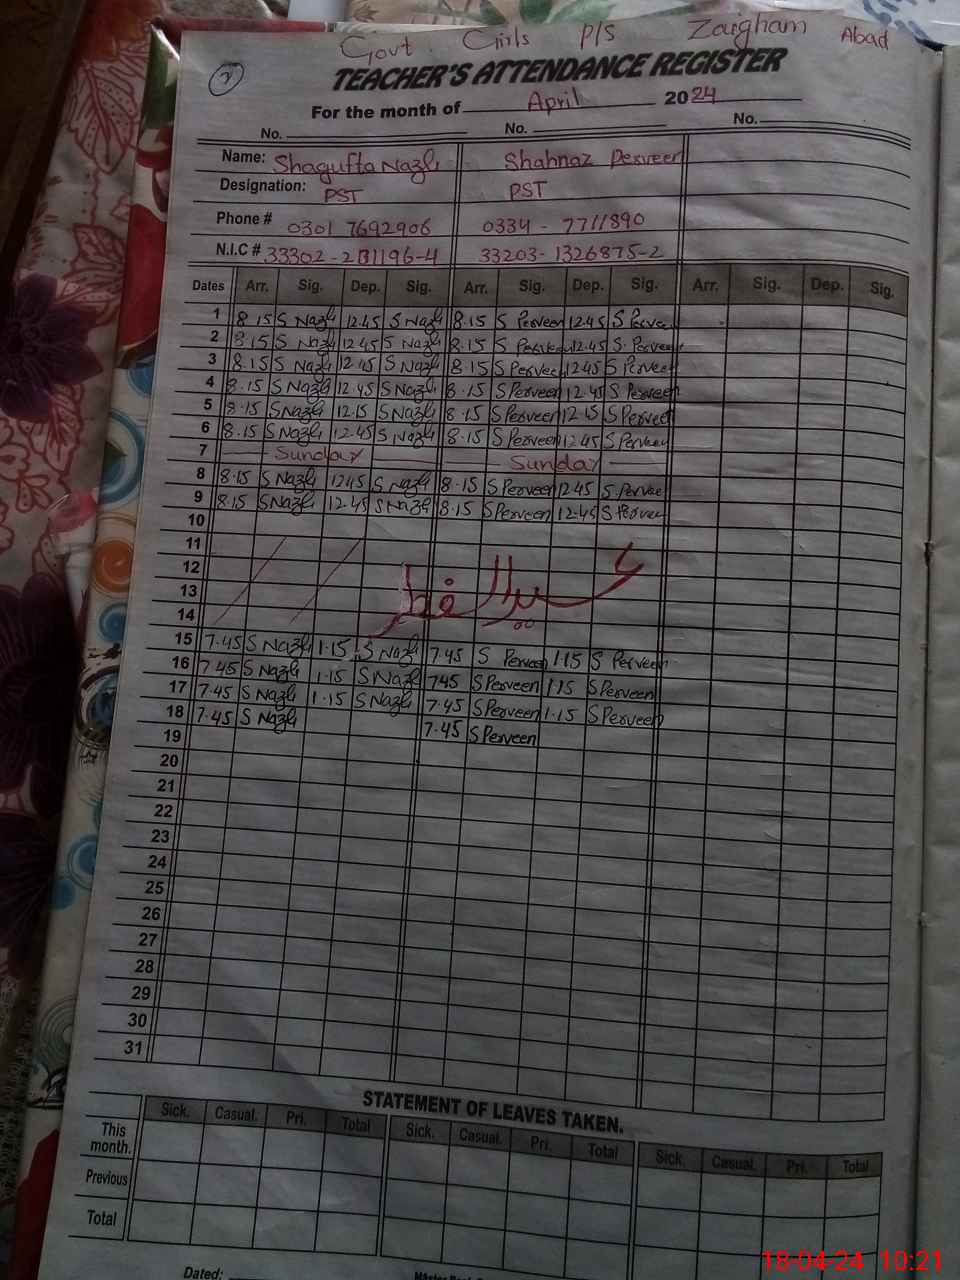 Govt. Girls P/S Zaigham Abad
TEACHER'S ATTENDANCE REGISTER
For the month of April 2024
No. No. No.
Name: Shagufta Nazli Shahnaz Perveen
Designation: PST PST
Phone # 0301 7692906 0334 - 7711890
N.I.C # 33203-1326875-2
Dates Arr. Sig. Dep. Sig. Arr. Sig. Dep. Sig. Arr. Sig. Dep. Sig.
1 8.15 S Nazli 12.45 S Nazli 8.15 S Perveen 12.45 S Perveen
2 8.15 S Nazli 12.45 S Nazli 8.15 S Perveen 12.45 S. Perveen
3 8.15 S Nazli 12.45 S Nazli 8.15 S Perveen 12.45 S Perveen
4 8.15 S Nazli 12.45 S Nazli 8.15 S Perveen 12.45 S Perveen
5 8.15 S Nazli 12.15 S Nazli 8.15 S Perveen 12.15 S Perveen
6 8.15 S Nazli 12.45 S Nazli 8.15 S Perveen 12.45 S Perveen
7 Sunday Sunday
8 8.15 S Nazli 12.45 S Nazli 8.15 S Perveen 12.45 S Perveen
9 8.15 S Nazli 12.45 S Nazli 8.15 S Perveen 12.45 S Perveen
10
11
12 عید الفطر
13
14
15 7.45 S Nazli 1.15 S Nazli 7.45 S Perveen 1.15 S Perveen
16 7.45 S Nazli 1.15 S Nazli 7.45 S Perveen 1.15 S Perveen
17 7.45 S Nazli 1.15 S Nazli 7.45 S Perveen 1.15 S Perveen
18 7.45 S Nazli 7.45 S Perveen
19
20
21
22
23
24
25
26
27
28
29
30
31
STATEMENT OF LEAVES TAKEN.
Sick. Casual. Pri. Total Sick. Casual. Pri. Total Sick. Casual. Pri. Total
This month.
Previous
Total
Dated:
18-04-24 10:21